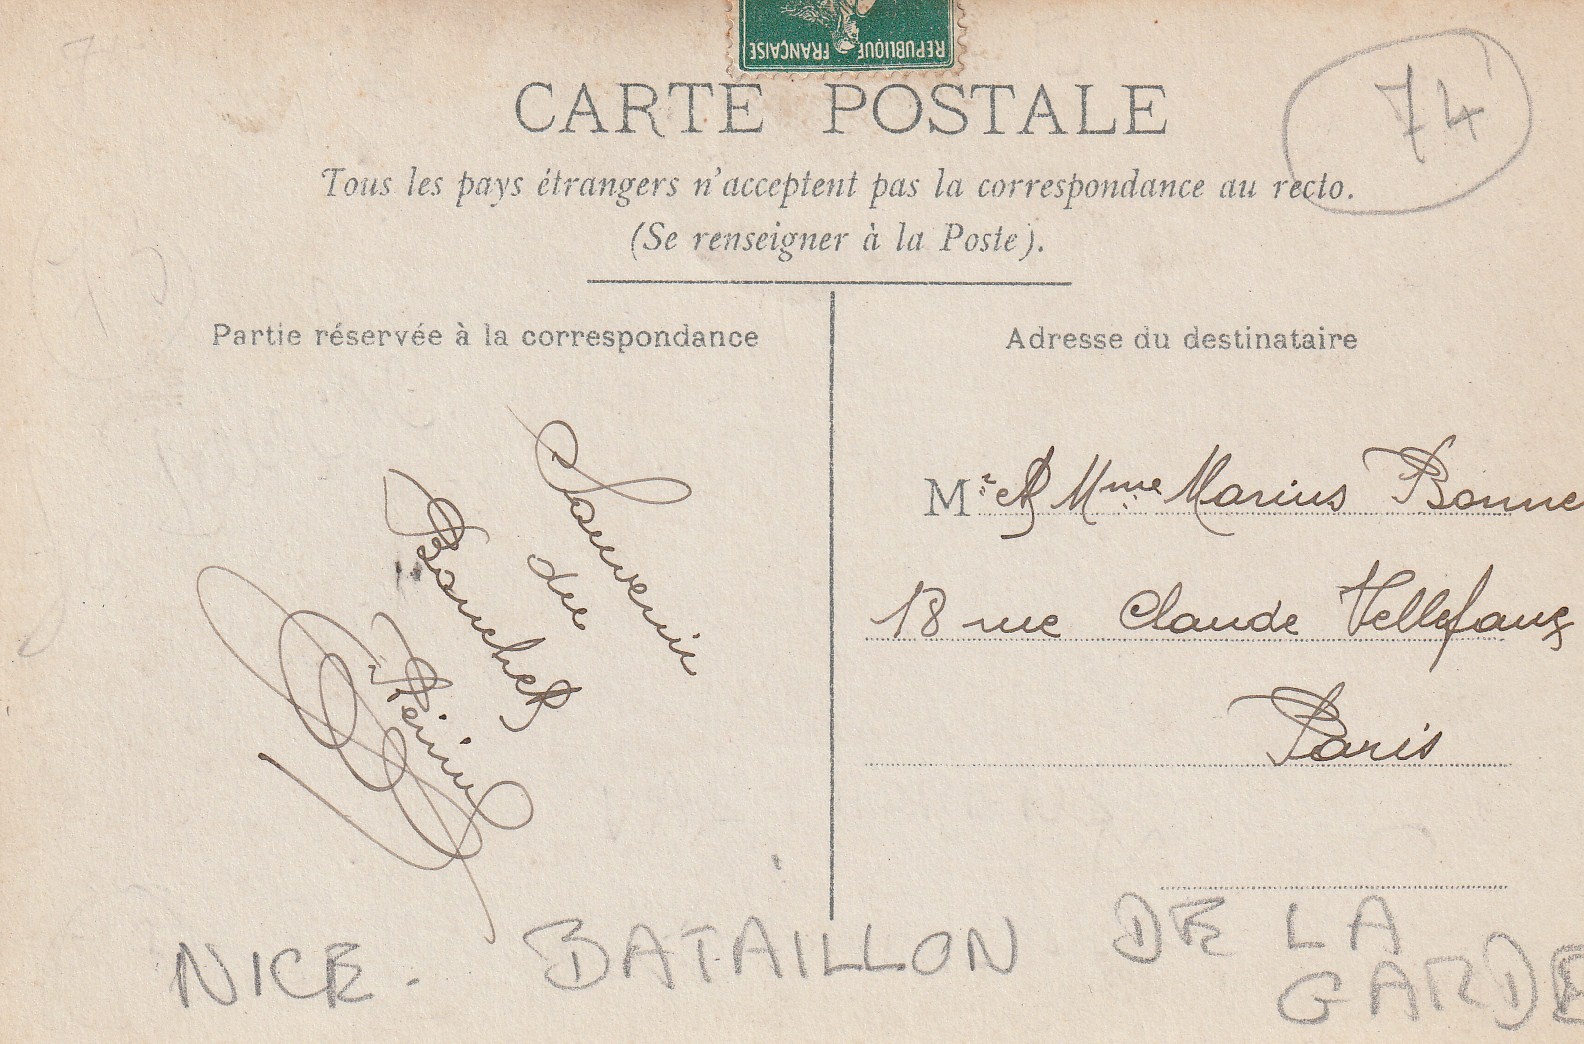 REPUBLIQUE FRANÇAISE
74
CARTE POSTALE
Tous les pays étrangers n'acceptent pas la correspondance au recto.
(Se renseigner à la Poste).
Partie réservée à la correspondance
Souvenir
du
Bouchet
Adresse du destinataire
Mr et Mme Marius Bonne
18 rue Claude Vellefaux
Paris
NICE. BATAILLON DE LA
GARDE